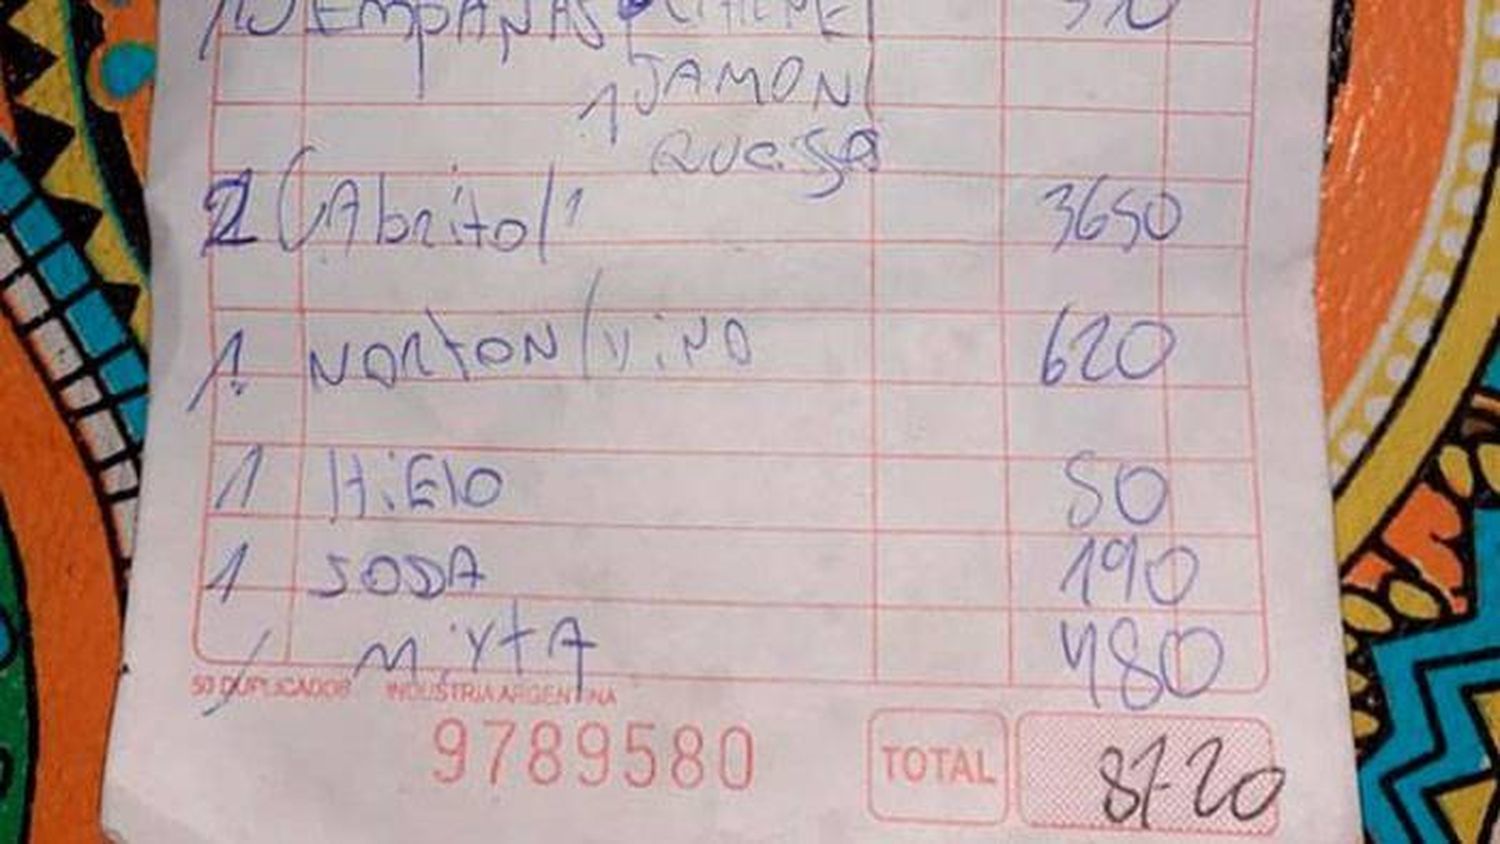 EMPANAS CARNE 370
1 JAMON
QUESO
2 CAbrito/1 3650
1 NORTON/ViNO 620
1 HiElO 50
1 SODA 190
1 MiXTA 480
50 DUPLICADOS INDUSTRIA ARGENTINA
9789580 TOTAL 8720